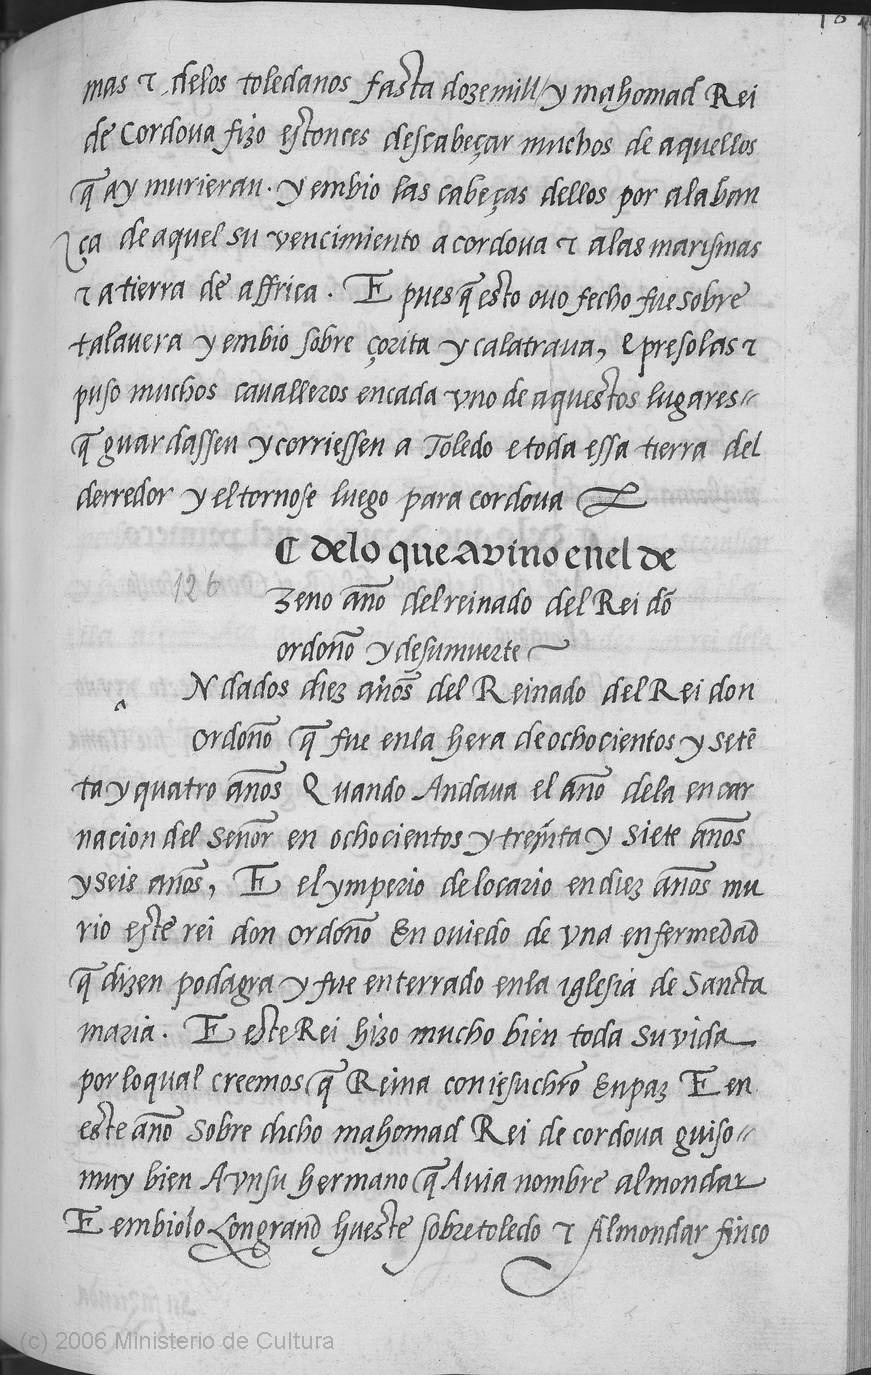 mas & delos toledanos fasta dozemill y mahomad Rei
de Cordova fizo estonces descabeçar muchos de aquellos
q̄ ay murieran. y embio las cabeças dellos por alaban
ça de aquel su vencimiento a cordova & alas marismas
& a tierra de affrica. E pues q̄ esto ovo fecho fue sobre
talavera y embio sobre çorita y calatrava, e presolas &
puso muchos cavalleros encada vno de aquestos lugares
q̄ guardassen y corriessen a Toledo e toda essa tierra del
derredor y el tornose luego para cordova
C delo que avino enel de
126
zeno año del reinado del Rei dō
ordoño y desumuerte
a
N dados diez años del Reinado del Rei don
Ordoño q̄ fue enla hera de ochocientos y setē
ta y quatro años Quando Andava el año dela encar
nacion del Señor en ochocientos y treynta y siete años
y seis años, E el ymperio de locario en diez años mu
rio este rei don ordoño En oviedo de vna enfermedad
q̄ dizen podagra y fue enterrado enla iglesia de Sancta
maria. E este Rei hizo mucho bien toda su vida
por lo qual creemos q̄ Reina con iesuchr̄o En paz E en
este año Sobre dicho mahomad Rei de cordova guiso
muy bien A vn su hermano q̄ Avia nombre almondar
E embiolo Con grand hueste sobre toledo & Almondar finco
(c) 2006 Ministerio de Cultura